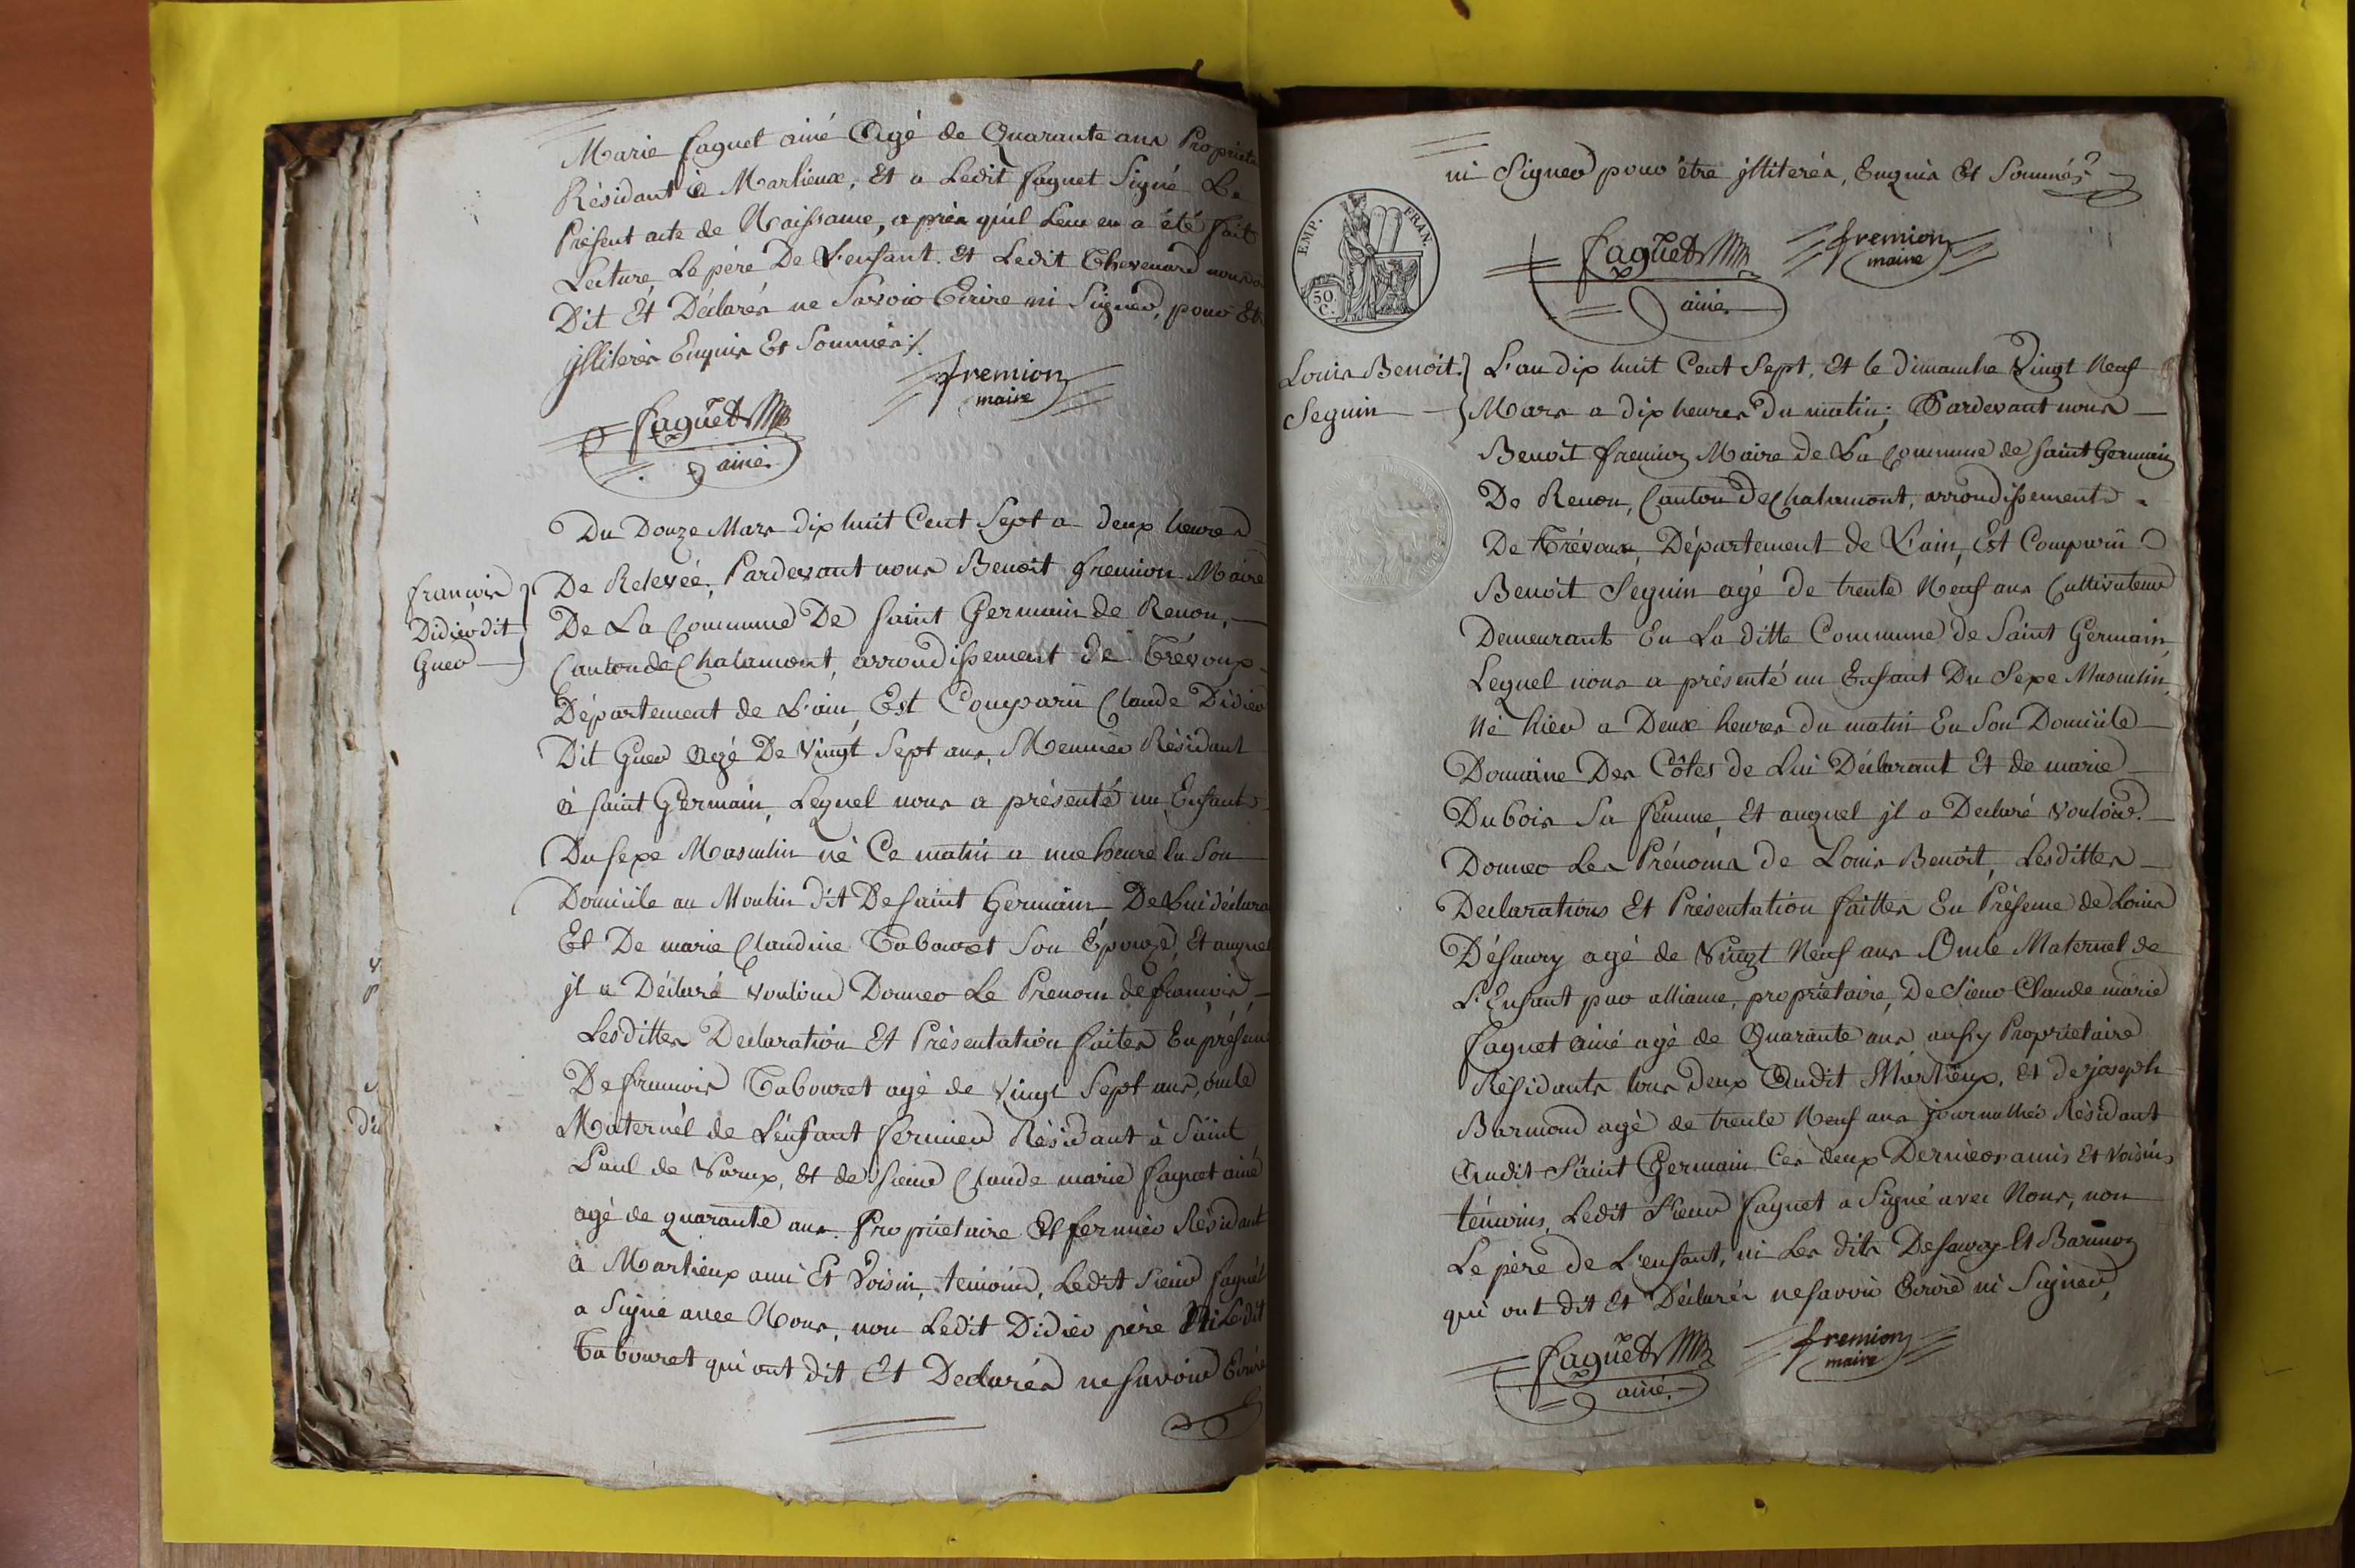 Marie faguet ainé Agé de Quarante ans Propriéta
Résidant à Marlieux, Et a Ledit faguet Signé Le
Présent acte de Naissance, après qu'il Leur en a été fait
Lecture, Le père De L'enfant. Et Ledit Thevenard nous
Dit Et Déclarés ne Savoir Ecrire ni Signer, pour Et
jlliterés Enquis Et Sommés ./.
fremion
maire
faguet
ainé
Du Douze Mars dix huit Cent Sept a deux heures
De Relevée, Pardevant nous Benoit fremion Maire
françois
Didier dit
Guer
De La Commune De Saint Germain de Renon,
Canton de Chalamont, arrondissement de Trévoux
Département de L'ain, Est Comparü Claude Didier
Dit Guer Agé De Vingt Sept ans, Meunier Résidant
à Saint Germain, Lequel nous a présenté un Enfant
Du Sexe Masculin né Ce matin a une heure En Son
Domicile au Moulin dit De Saint Germain De Lui déclara
Et De marie Claudine Tabouret Son Épouze, Et auquel
jl a Déclaré Vouloir Donner Le Prenom de françois
Lesdittes Declaration Et Présentation faites En présence
De françois Tabouret agé de Vingt Sept ans, oncle
Maternél de L'enfant fermier Résidant à Saint
Paul de Varax, Et de Sieur Claude marie faguet ainé
agé de quarante ans Propriétaire Et fermier Résidant
à Marlieux ami Et Voisin, témoins, Ledit Sieur faguet
a Signé avec Nous, non Ledit Didier père Ni Ledit
Tabouret qui ont dit Et Declarés ne Savoir Ecrire
ni Signer pour être jlliterés, Enquis Et Sommés
EMP. FRAN.
50 C.
faguet
ainé
fremion
maire
Louis Benoit
Seguin
L'an dix huit Cent Sept, Et le dimanche Vingt Neuf
Mars a dix heures Du matin; Pardevant nous
Benoit fremion Maire de La Commune de Saint Germain
De Renon, Canton de Chalamont, arrondissement
De Trévoux, Département de L'ain, Est Comparü
Benoit Séguin agé de trente Neuf ans Cultivateur
Demeurant En La ditte Commune de Saint Germain,
Lequel nous a présenté un Enfant Du Sexe Masculin,
Né hier a Deux heures du matin En Son Domicile
Domaine Des Côtes de Lui Déclarant Et de marie
Dubois Sa femme, Et auquel jl a Declaré Vouloir
Donner Les Prénoms de Louis Benoit, Lesdittes
Declarations Et Présentation faittes En Présence de Louis
Désaury agé de Vingt Neuf ans Oncle Maternel de
L'Enfant par alliance, propriétaire, De Sieur Claude marie
faguet ainé agé de Quarante ans aussy Propriétaire
Résidants tous deux Audit Marlieux, Et de joseph
Barmond agé de trente Neuf ans journalier Résidant
Audit Saint Germain Ces deux Derniers amis Et Voisins
témoins, Ledit Sieur faguet a Signé avec Nous, non
Le père de L'enfant, ni Les dits Desaury Et Barmon
qui ont dit Et Déclarés ne savoir Ecrire ni Signer,
faguet
ainé
fremion
maire